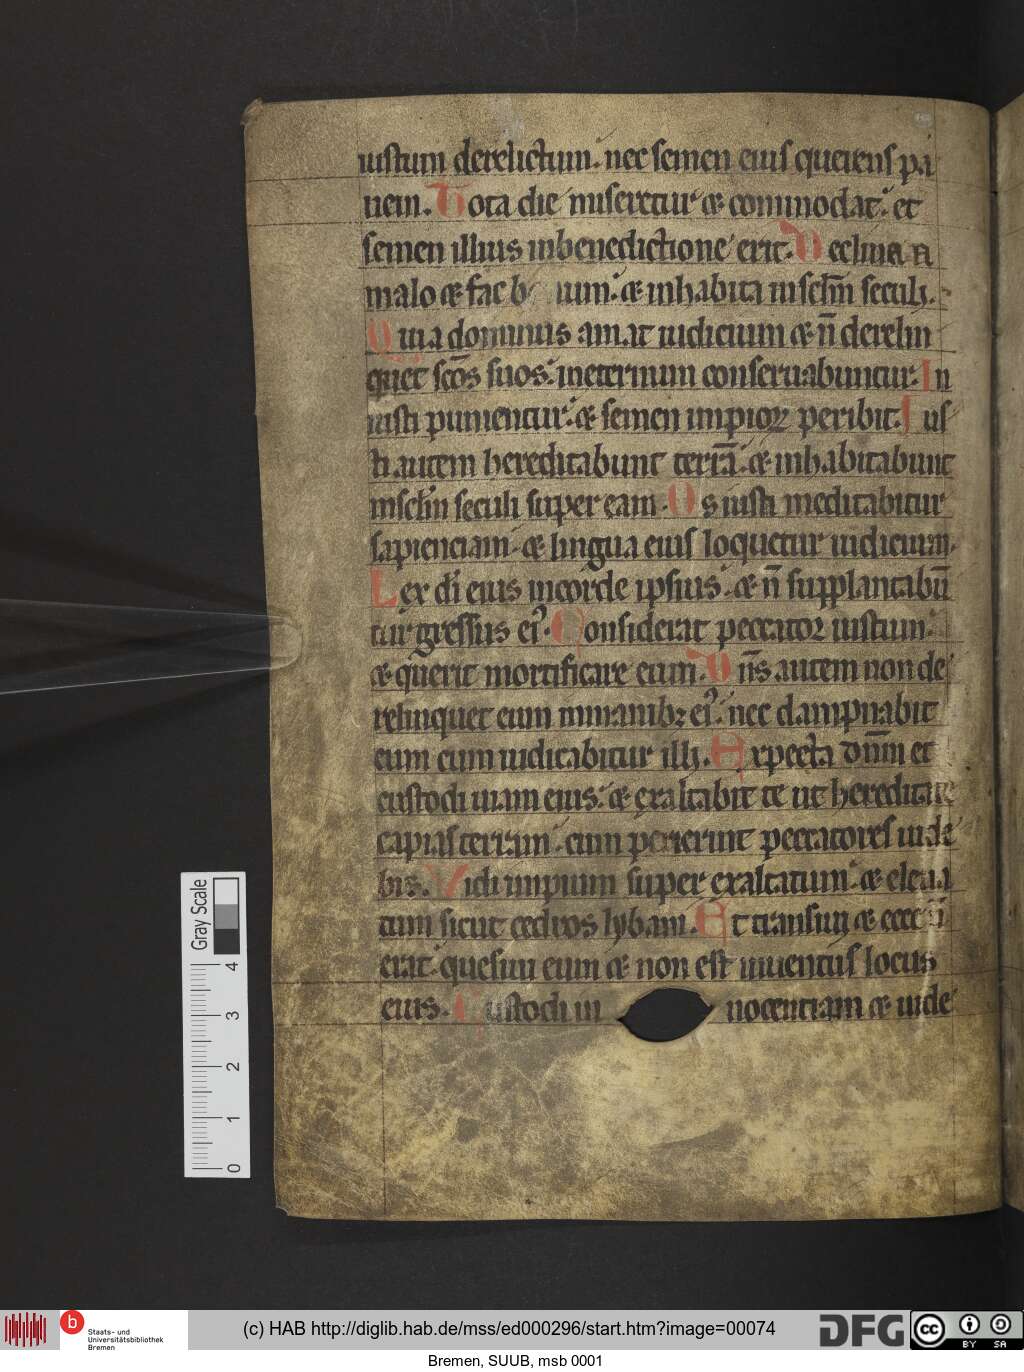 iustum derelictum. nec semen eius querens pa
nem. Tota die miseretur & commodat. et
semen illius inbenedictione erit. Declina a
malo & fac b num. & inhabita inscl̄m seculi.
Quia dominus amat iudicium & n̄ derelin
quet sc̄os suos. ineternum conseruabuntur. In
iusti punientur. & semen impioꝝ peribit. Ius
ti autem hereditabunt terrā. & inhabitabunt
inscl̄m seculi super eam. Os iusti meditabitur
sapienciam. & lingua eius loquetur iudicium.
Lex dī eius incorde ipsius. & n̄ supplantabū
tur gressus ei᾿. Considerat peccator iustum.
& querit mortificare eum. Dn̄s autem non de
relinquet eum inmanibꝫ ei᾿. nec dampnabit
eum cum iudicabitur illi. Expecta dn̄m et
custodi uiam eius. & exaltabit te ut hereditate
capias terram. cum perierint peccatores uide
bis. Vidi impium super exaltatum. & eleua
tum sicut cedros lybani. Et transiui & ecce n̄
erat. quesiui eum & non est inuentus locus
eius. Custodi in nocentiam & uide
Gray Scale
4
3
2
1
0
b
Staats- und
Universitätsbibliothek
Bremen
(c) HAB http://diglib.hab.de/mss/ed000296/start.htm?image=00074
DFG
cc
BY SA
Bremen, SUUB, msb 0001